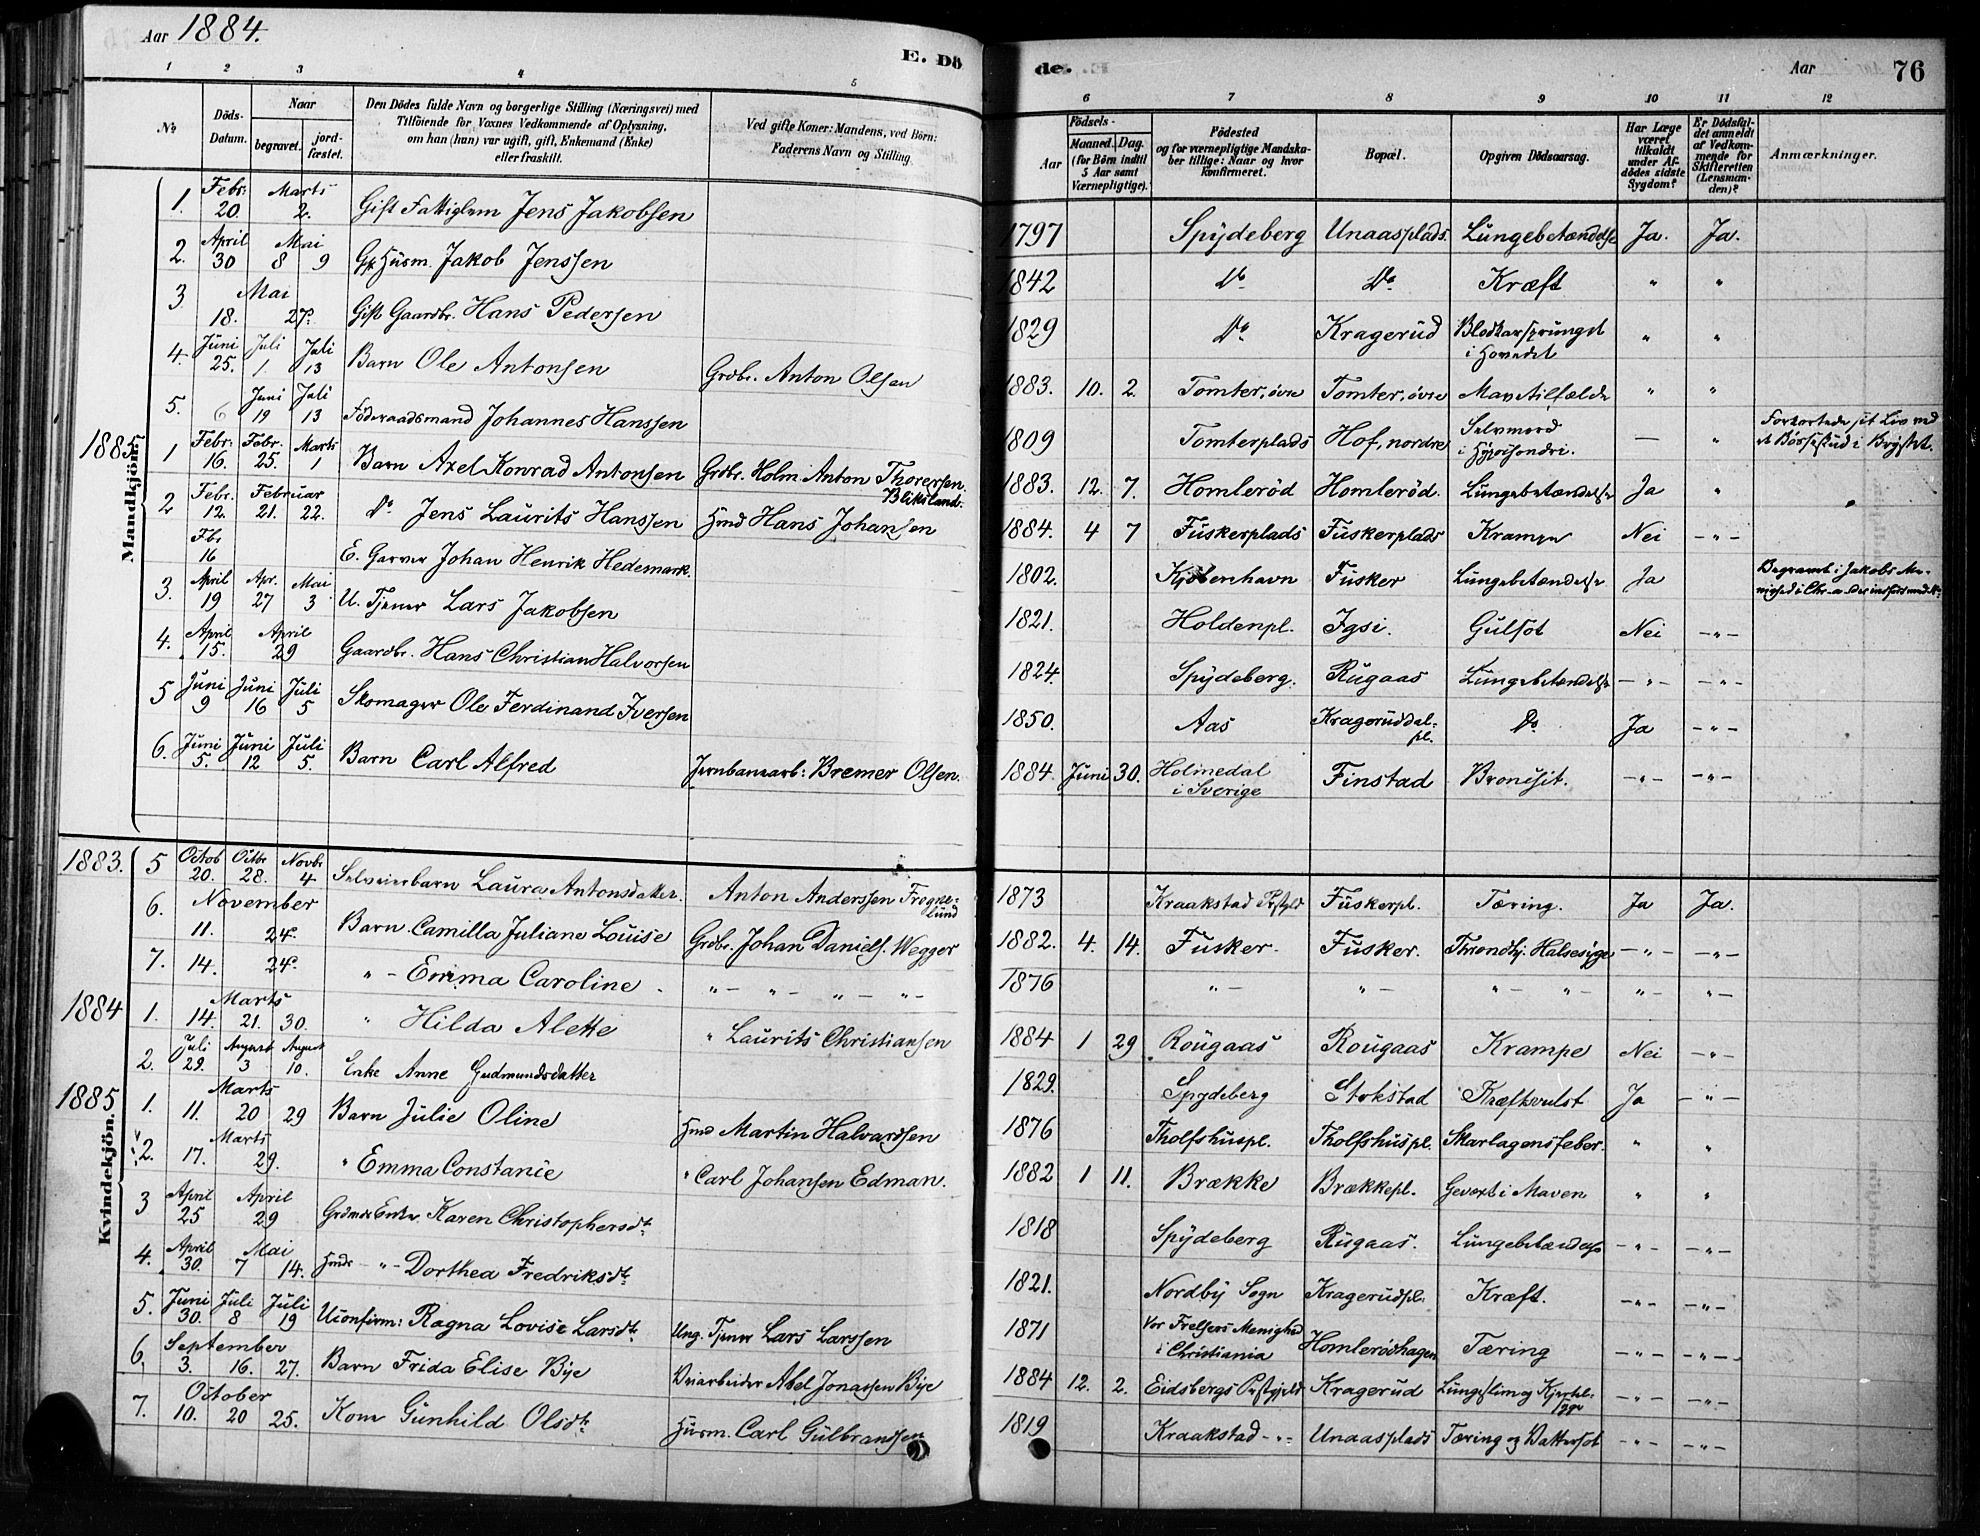 Aar 1884.
E. Dö
de.
Aar
76
1 2 3 4 5
6 7 8 9 10 11 12
No
Döds-Datum.
Naar
begravet.
jord-fæstet.
Den Dödes fulde Navn og borgerlige Stilling (Næringsvei) med
Tilföiende for Voxnes Vedkommende af Oplysning,
om han (hun) var ugift, gift, Enkemand (Enke)
eller fraskilt.
Ved gifte Koner: Mandens, ved Börn:
Faderens Navn og Stilling.
Födsels-
Aar
Maaned. Dag.
(for Börn indtil
5 Aar samt
Værnepligtige).
Födested
og for værnepligtige Mandska-
ber tillige: Naar og hvor
konfirmeret.
Bopæl.
Opgiven Dödsaarsag.
Har Læge
været
tilkaldt
under Af-
dödes sidste
Sygdom?
Er Dödsfal-
det anmeldt
af Vedkom-
mende for
Skifteretten
(Lensman-
den)?
Anmærkninger.
Mandkjön.
1. Febr. 20. Marts 2. Gift Fattiglem Jens Jakobsen 1797 Spydeberg Unaasplads. Lungebetændelse Ja. Ja.
2. April 30 Mai 8 9 Gift Husm. Jakob Jenssen 1842 Do Do Kræft " "
3 Mai 18. 27. Gift Gaardbr. Hans Pedersen 1829 Do Kragerud Blodkarsprunget i Hovedet " "
4. Juni 25. Juli 1 Juli 13 Barn Ole Antonsen Grdbr. Anton Olsen 1883. 10. 2. Tomter, övre Tomter, övre Mavetilfælde " "
5. 6 Juni 19 Juli 13 Föderaadsmand Johannes Hanssen 1809 Tomterplads Hof, nordre Selvmord i Hypokondri. — " Forkortede sit Liv ved et Börseskud i Brystet.
1885
1 Febr. 16. Febr. 25. Marts 1 Barn Axel Konrad Antonsen Grdbr. Holm Anton Thoresen Bliksland. 1883. 12. 7. Homleröd Homleröd. Lungebetændelse Ja "
2 Febr. 12. Februar 21. 22. Do Jens Laurits Hanssen Hmd Hans Johansen 1884. 4 7 Fuskerplads Fuskerplads Krampe Nei -"-
Fbr. 16 E. Garver Johan Henrik Hedemark. 1802. Kjöbenhavn Fusker Lungebetændelse Ja Begravet i Jakobs Me-
3. April 19 Apr. 27 Mai 3 U. Tjener Lars Jakobsen 1821. Holdenpl. Igsi. Gulsot Nei -"-
4. April 15. April 29 Gaardbr. Hans Christian Halvorsen 1824. Spydeberg. Rugaas Lungebetændelse -"- -"-
5 Juni 9 Juni 16 Juli 5 Skomager Ole Ferdinand Iversen 1850. Aas Krageruddal-pl. Do Ja -"-
6. Juni 5. Juni 12 Juli 5. Barn Carl Alfred Jernbanearb: Bremer Olsen. 1884. Juni 30. Holmedal i Sverige Finstad Bronchit. -"- -"-
Kvindekjön.
1883. 5 Octob 20. Octbr 28. Novbr 4 Selveierbarn Laura Antonsdatter. Anton Anderssen Frogne-lund 1873 Kraakstad Prstgjld Fuskerpl. Tæring. Ja Ja.
6. November 11. 24. Barn Camilla Juliane Louise Grdbr. Johan Daniels. Wegger 1882. 4. 14. Fusker. Fusker. Throndhj. Halsesyge -"- -"-
7. 14. 24. "- Emma Caroline "- "- "- "- 1876 "- "- "- "- "- "-
1884 1. Marts 14. 21. 30. " Hilda Alette " Laurits Christiansen 1884 1 29 Rougaas Rougaas Krampe Nei -"-
2. Juli 29. August 3 August 10. Enke Anne Gudmundsdatter 1829. Spydeberg Stokstad Kræftsvulst Ja -"-
1885 1. Marts 11. 20 29 Barn Julie Oline Hmd Martin Halvardsen 1876 Tholfshuspl. Tholfshuspl. Skarlagensfeber. " "
2. Marts 17. 29. " Emma Constanse " Carl Johansen Edman. 1882 1 11. Brække Brækkepl. Gevext i Maven " "
3 April 25 April 29 Grdmds Enke Karen Christophersdtr. 1818 Spydeberg Rugaas. Lungebetændelse -"- -"-
4. April 30. Mai 7 14. Hmds -"- Dorthea Fredriksdtr. 1821. Nordby Sogn Kragerudpl. Kræft. -"- -"-
5. Juni 30. Juli 8 Juli 19 Uconfirm: Ragna Lovise Larsdtr. Ung. Tjener Lars Larssen 1871 Vor Frelsers Menighed i Christiania Homlerödhagen Tæring -"- -"-
6. September 3. 16. 27. Barn Frida Elise Bye Veiarbeider Abel Jonassen Bye 1884 12. 2. Eidsbergs Prstgjeld Kragerud Lungeslim og Kjertelsyge -"- -"-
7. October 10. 20 25. Kone Gunhild Olsdtr. Husm. Carl Gulbrandsen 1819 Kraakstad -"- Unaasplads Tæring og Vattersot -"- -"-